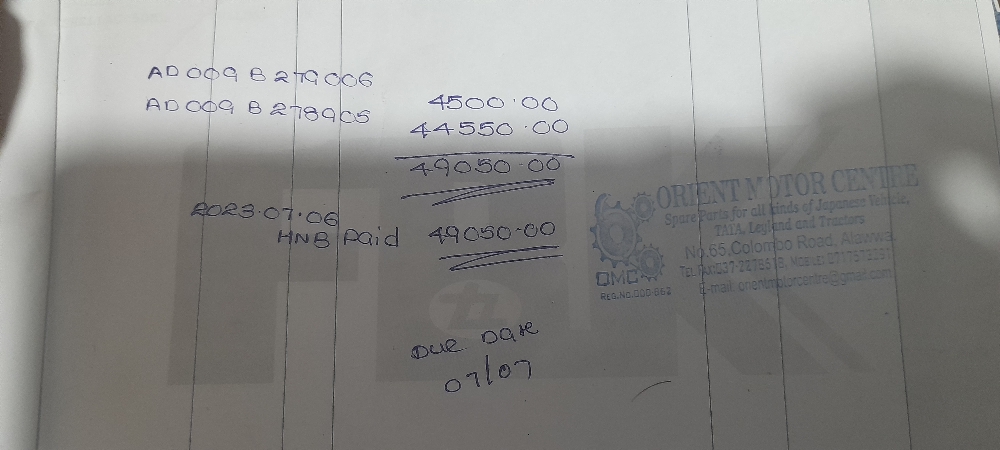 AD009B279006
AD009B278905
4500.00
44550.00
49050.00
2023.07.06
HNB Paid 49050.00
DUE DATE
07/07
ORIENT MOTOR CENTRE
Spare Parts for all kinds of Japanese Vehicle,
TATA, Leyland and Tractors
No.65, Colombo Road, Alawwa.
OMC
E-mail: orientmotorcentre@gmail.com